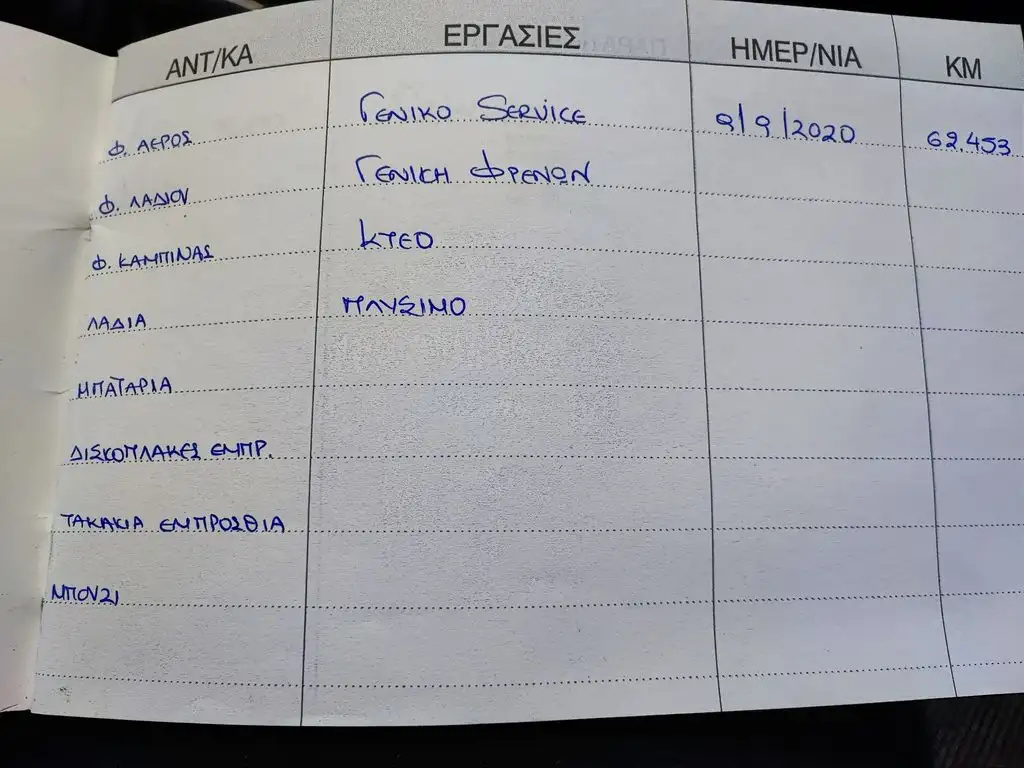 ΑΝΤ/ΚΑ ΕΡΓΑΣΙΕΣ ΗΜΕΡ/ΝΙΑ ΚΜ
Φ. ΑΕΡΟΣ ΓΕΝΙΚΟ SERVICE 9/9/2020 62.453
Φ. ΛΑΔΙΟΥ ΓΕΝΙΚΗ ΦΡΕΝΩΝ
Φ. ΚΑΜΠΙΝΑΣ ΚΤΕΟ
ΛΑΔΙΑ ΠΛΥΣΙΜΟ
ΜΠΑΤΑΡΙΑ
ΔΙΣΚΟΠΛΑΚΕΣ ΕΜΠΡ.
ΤΑΚΑΚΙΑ ΕΜΠΡΟΣΘΙΑ
ΜΠΟΥΖΙ